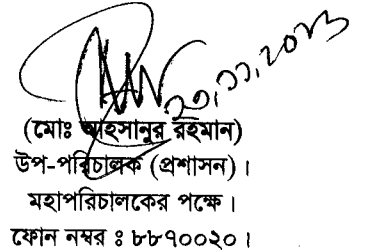 ২০,১১,২০১৩
(মোঃ আহসানুর রহমান)
উপ-পরিচালক (প্রশাসন)।
মহাপরিচালকের পক্ষে।
ফোন নম্বর ঃ ৮৮৭০০২০।